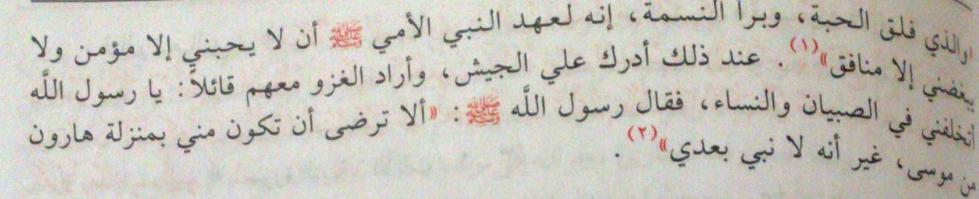 «والذي فلق الحبة، وبرأ النسمة، إنه لعهد النبي الأمي ﷺ أن لا يحبني إلا مؤمن ولا
يبغضني إلا منافق»(١). عند ذلك أدرك علي الجيش، وأراد الغزو معهم قائلاً: يا رسول اللَّه
أتخلفني في الصبيان والنساء، فقال رسول اللَّه ﷺ: «ألا ترضى أن تكون مني بمنزلة هارون
من موسى، غير أنه لا نبي بعدي»(٢).